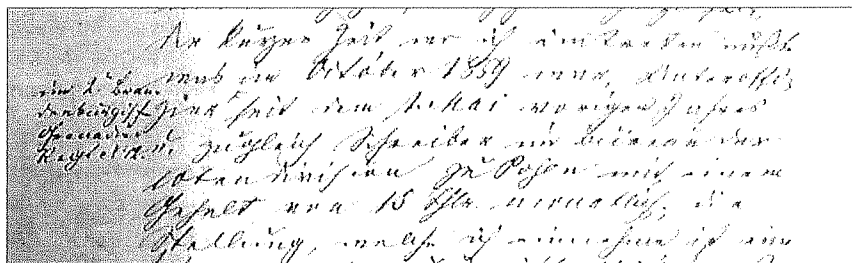 der kurzen Zeit wo ich eintreten mußte
was im October 1859 war, Unteroffi,
zier seit dem 1. Mai vorigen Jahres
zugleich Schreiber im Büreau der
10ten Division zu Posen mit einem
Gehalt von 15 Thlr monatlich, die
Stellung, welche ich einnehme ist eine
im 2. Bran
denburgisch
Grenadier
Regiment